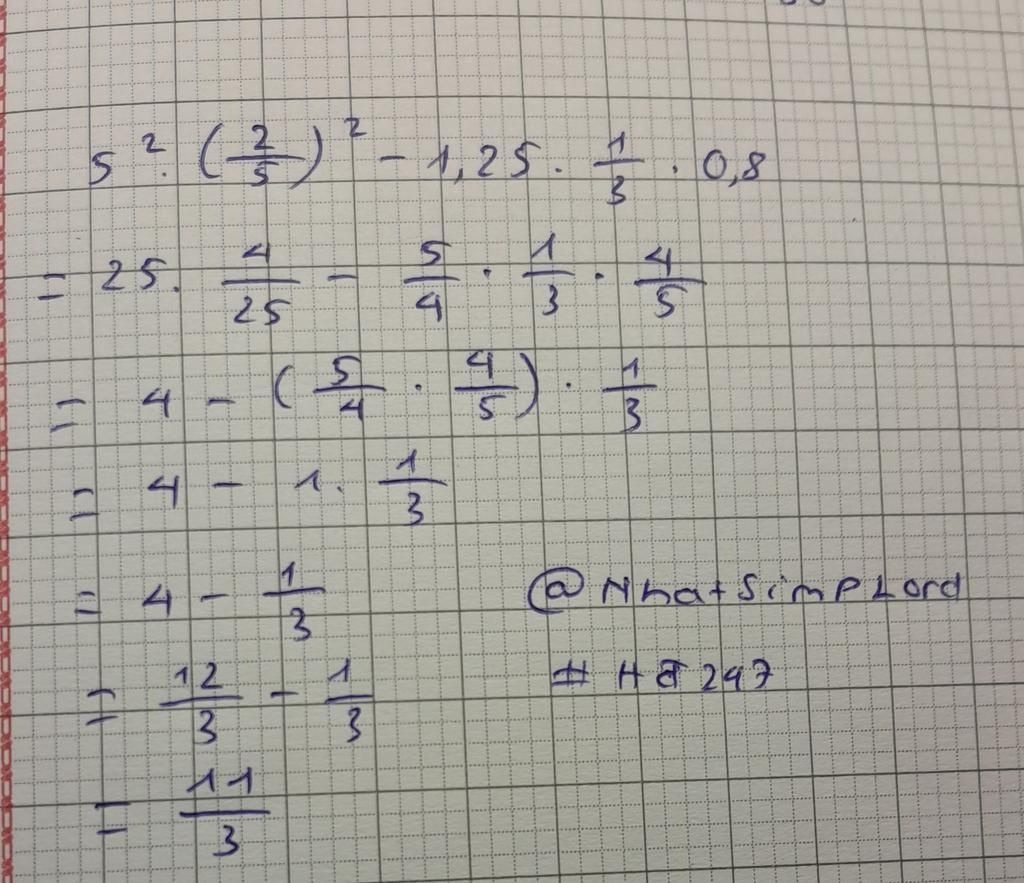 5² · (2/5)² - 1,25 · 1/3 · 0,8
= 25 · 4/25 - 5/4 · 1/3 · 4/5
= 4 - (5/4 · 4/5) · 1/3
= 4 - 1 · 1/3
= 4 - 1/3
@NhatSimpLord
= 12/3 - 1/3
247
= 11/3